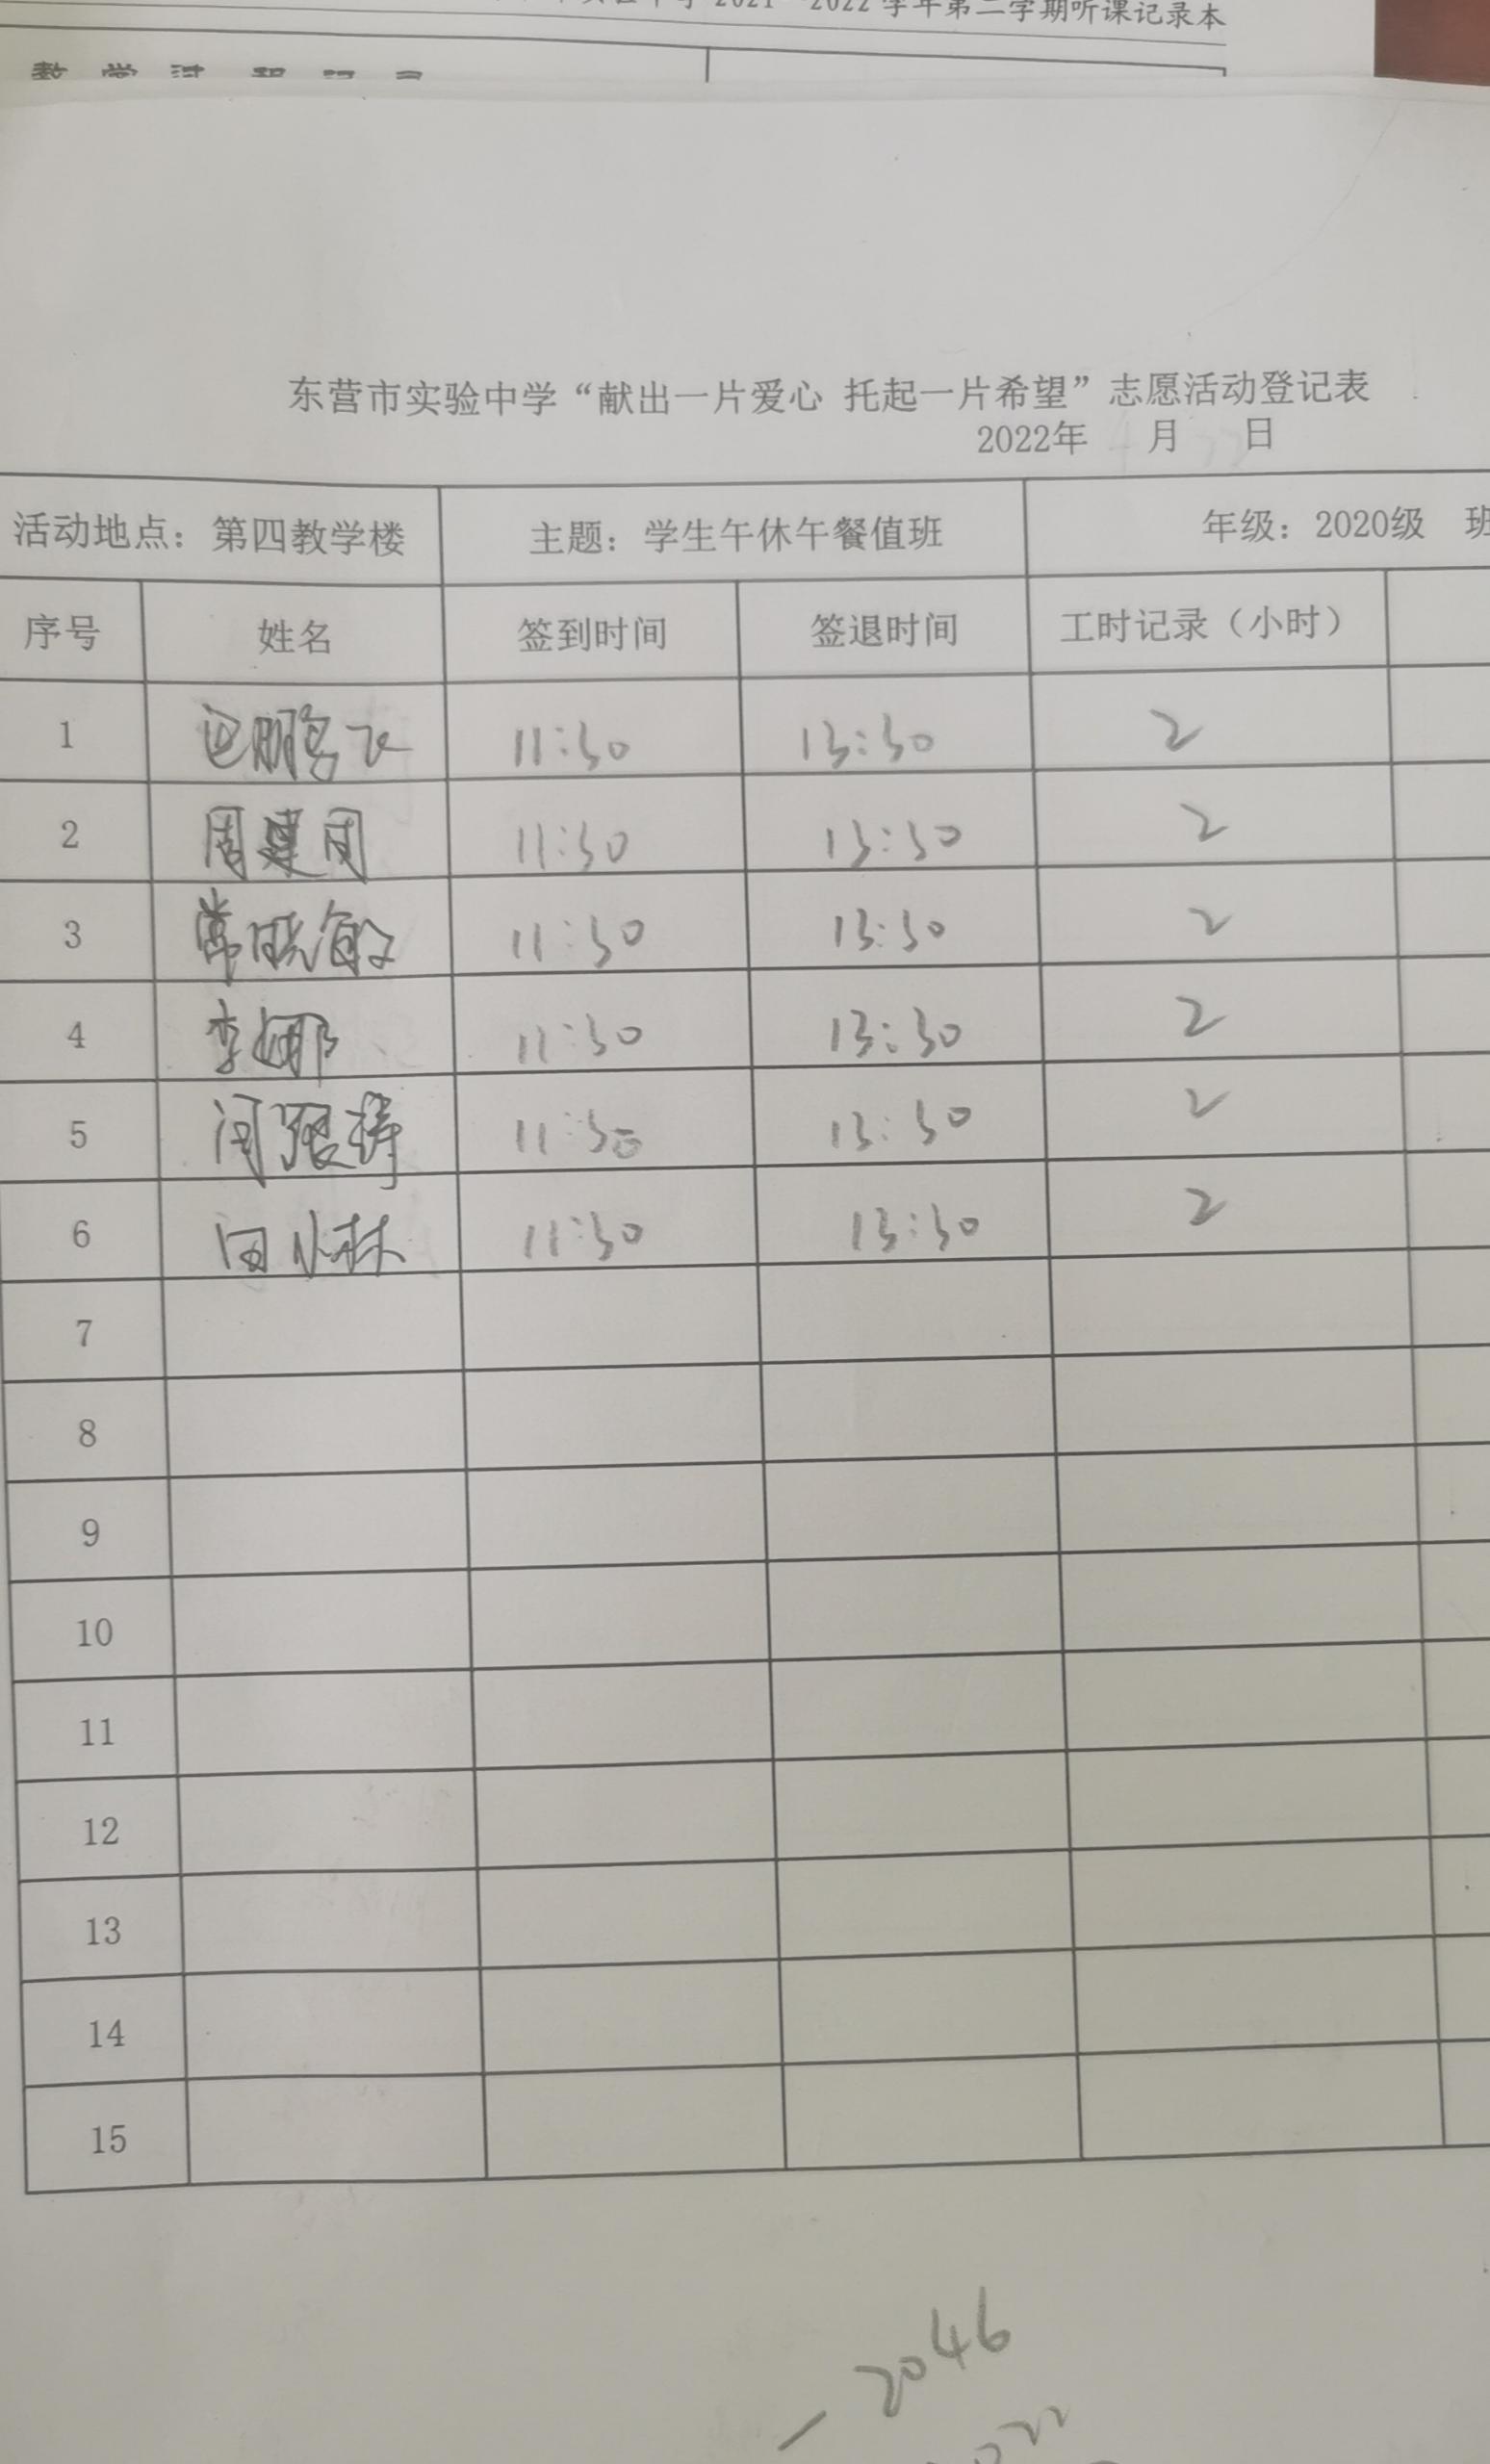 2021 2022学年第二学期听课记录本
东营市实验中学“献出一片爱心 托起一片希望”志愿活动登记表
2022年 4月 22日
活动地点：第四教学楼 主题：学生午休午餐值班 年级：2020级 班
序号 姓名 签到时间 签退时间 工时记录（小时）
1 11:30 13:30 2
2 周建 11:30 13:30 2
3 常晓敏 11:30 13:30 2
4 李娜 11:30 13:30 2
5 11:30 13:30 2
6 田小林 11:30 13:30 2
7
8
9
10
11
12
13
14
15
2046